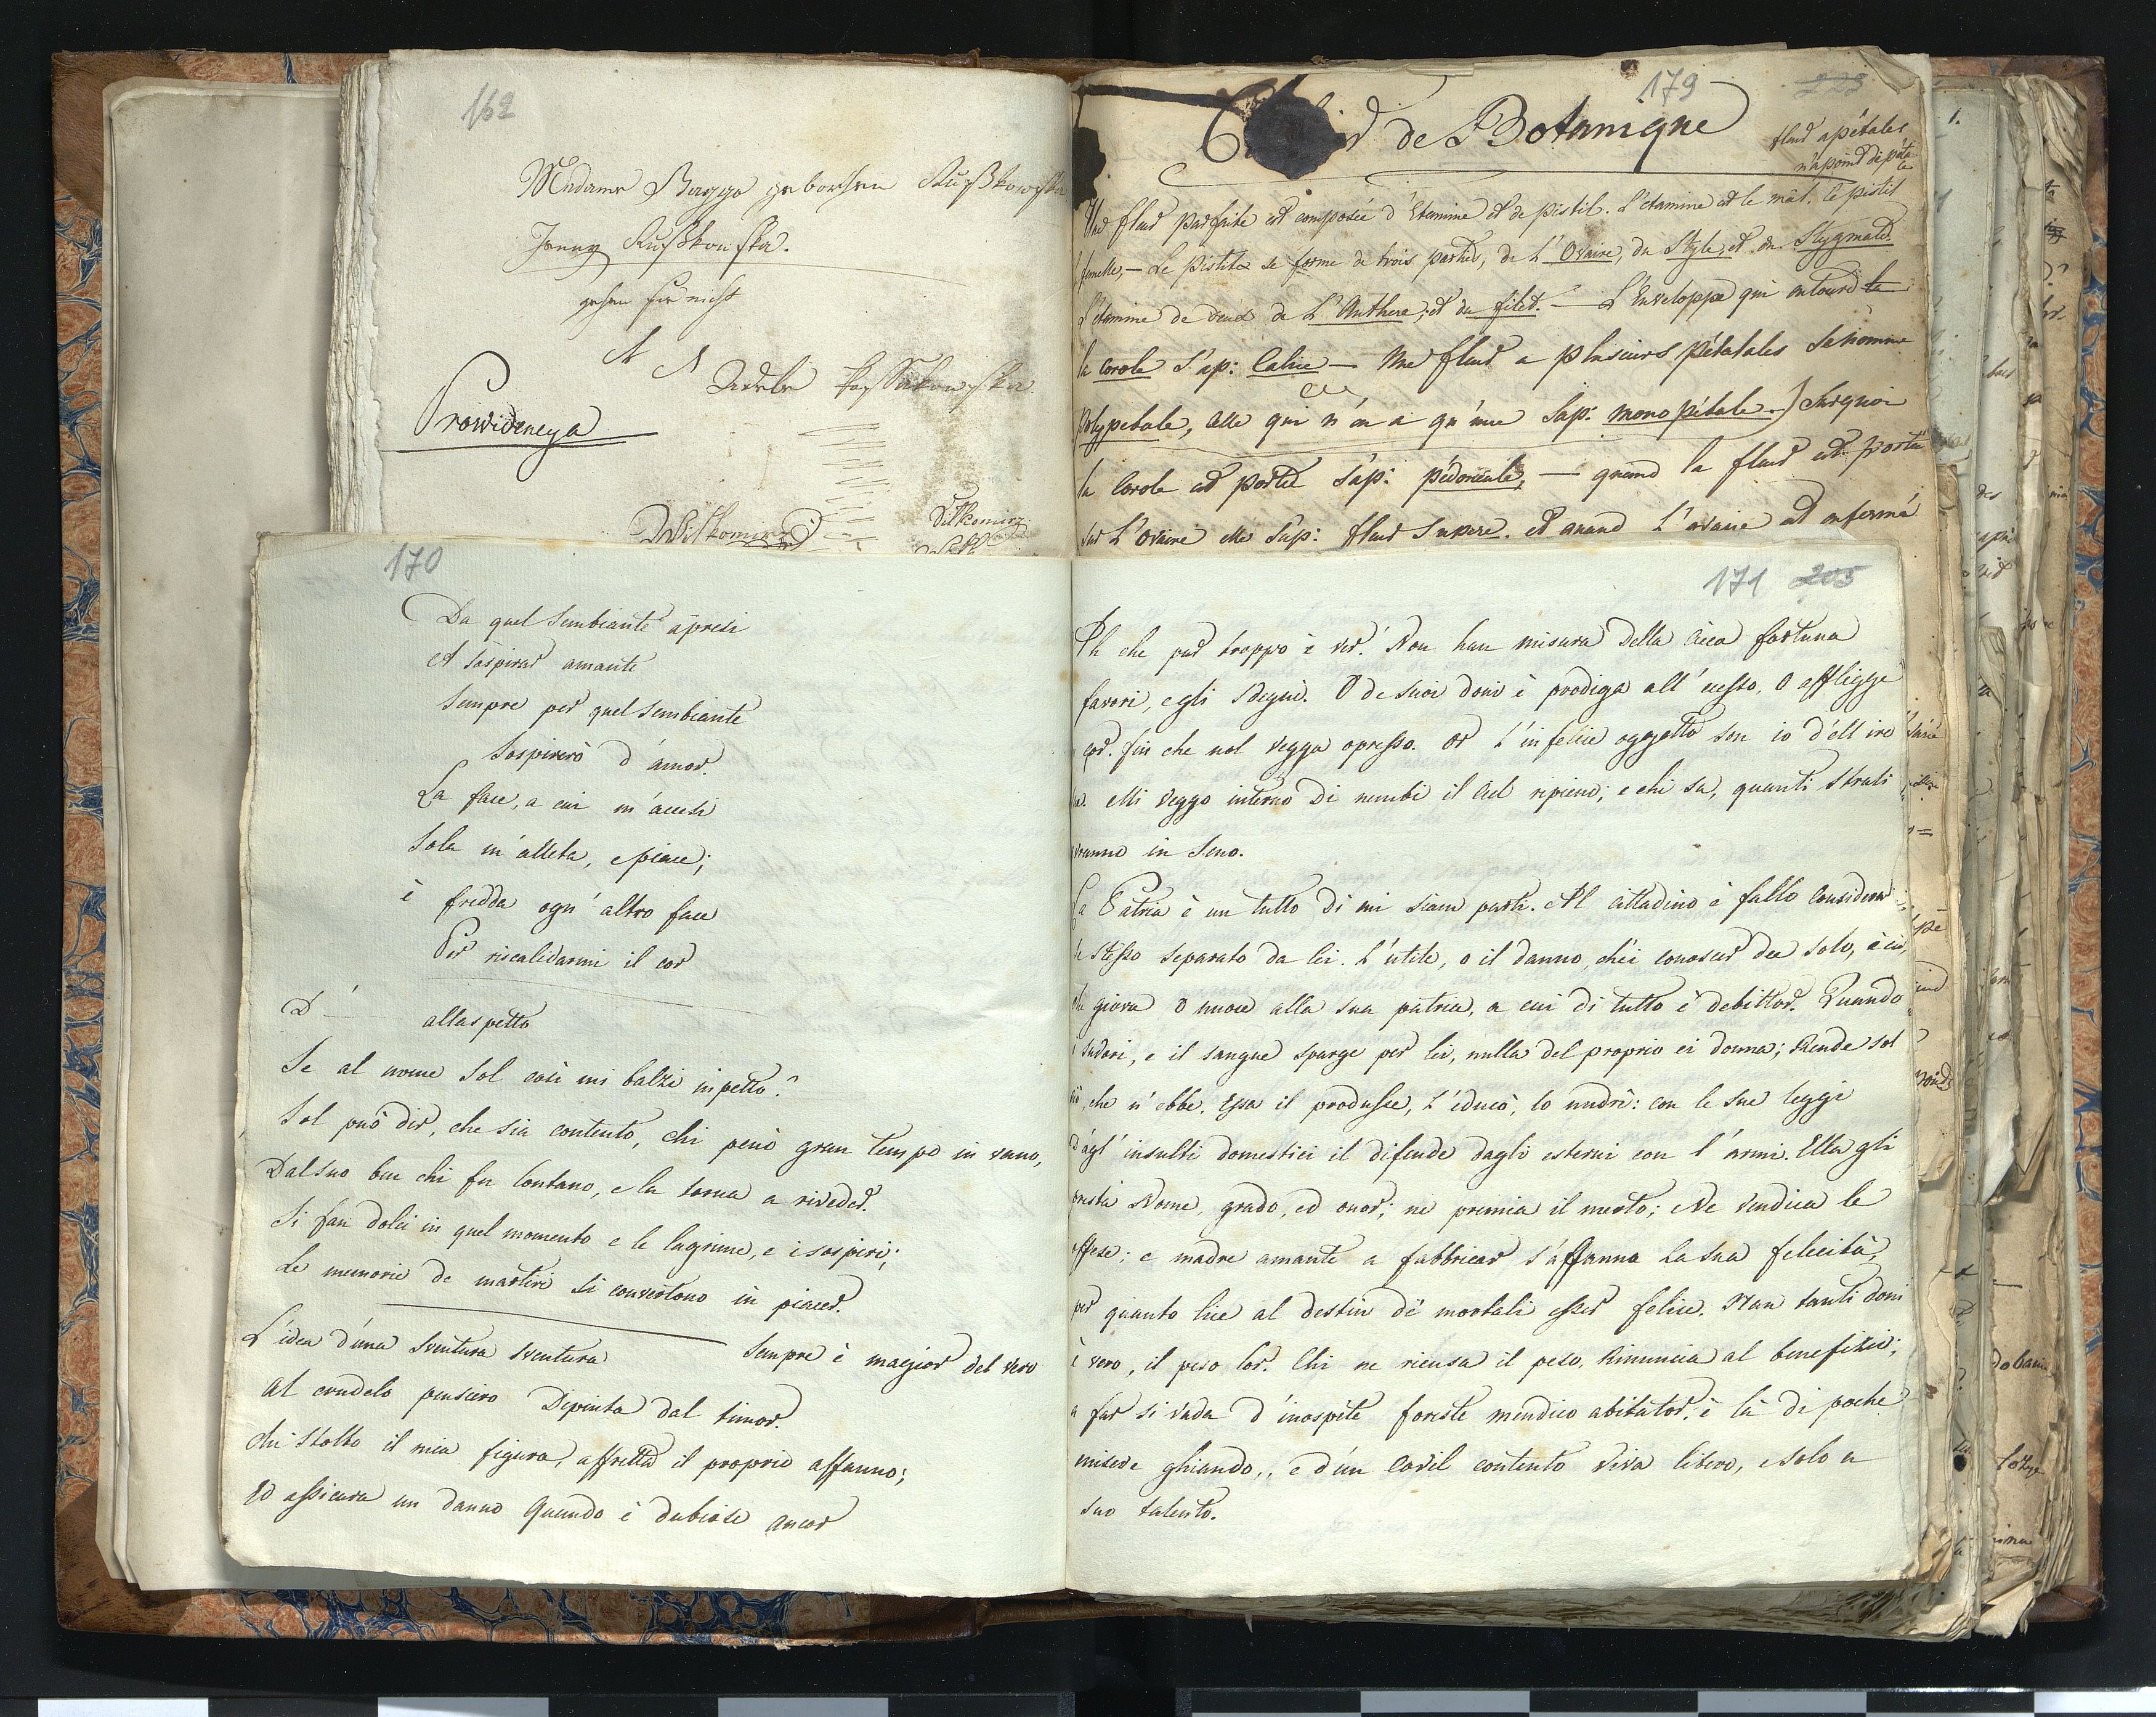 162
Madame Bagge geborhen Rußkowska
Jenny Rußkowska.
gehen sie nicht
A A Adele Kossakowska
Prowidencya
Wilkomirz
Wilkomirz
179 223
de Botanique
fleur apétales
n'apoind de péta
Une fleur parfaite est composée d'Etamine et de pistil. L'étamine est le mâl. le pistil
femelle, — Le Pistile se forme de trois parties, de L'Ovaire, du Style, et du Stygmate
L'étamine de deux de L'Anthere, et du filet. — L'Enveloppe qui entoure le
la Corole s'ap: Calice — Une fleur a plusieurs Pétatales se nomme
Polypetale, celle qui n'en a qu'une s'ap: monopétale.) Surquoi
la Corole est portée s'ap: pédoncule, — quand la fleur est portée
sur L'ovaire elle s'ap: fleur supere. et quand L'ovaire est enfermé
170
Da quel Sembiante apresi
A sospirar amante
Sempre per quel sembiante
Sospirerò d'amor.
La face, a cui m'accesi
Sola m'alleta, e piace;
è fredda ogn' altro face
Per riscalidarmi il cor
D' allaspetto
Se al nome sol così mi balzi in petto?
Sol può dir, che sia contento, chi penò gran tempo in vano,
Dal suo ben chi fu lontano, e lu torna a riveder.
Si fan dolci in quel momento e le lagrime, e i sospiri;
Le memorie de martiri si convertono in piacer.
L'idea d'una sventura sventura Sempre è magior del vero
Al crudele pensiero Dipinta dal timor.
Chi stolto il mia figura, affretta il proprio affanno;
Ed assicura un danno Quando è dubiose ancor
171 205
Ah che pur troppo è ver! Non han misura della cieca fortuna
favori, e gli sdegni. O de suoi doni è prodiga all' ecesso, O affligge
cor. fin che nol vegga opresso. Or L'infelice oggetto son io d'ell ire
sue. Mi veggo intorno di nembi il Ciel ripieno; e chi sa, quanti strali
vranno in Seno.
La Patria è un tutto di cui siam parti. Al cittadino è fallo Considerar
se stesso separato da lei. L'utile, o il danno, ch'ei conoscer dee solo, è ciò,
che giova o nuoce alla sua patria, a cui di tutto è debittor. Quando
i sudori, e il sangue sparge per lei, nulla del proprio ei donna; Rende sol
ciò, che n'ebbe. Essa il produsse, L'éducò, lo nudrì: con le sue leggi
Dagl' insulti domestici il difende dagli esterni con l'armi. Ella gli
presta Nome, grado, ed onor; ne premia il merto; Ne vendica le
offese; e madre amante a fabbricar s'affanna la sua felicità,
per quanto lice al destin de mortali esser felice. Han tanti doni
è vero, il peso lor. Chi ne ricusa il peso, Rinuncia al benefizio;
a far si vada d'inospite foreste mendico abitator; è là di poche
misere ghiande, e d'un Covil contento Viva libero, e solo a
suo talento.